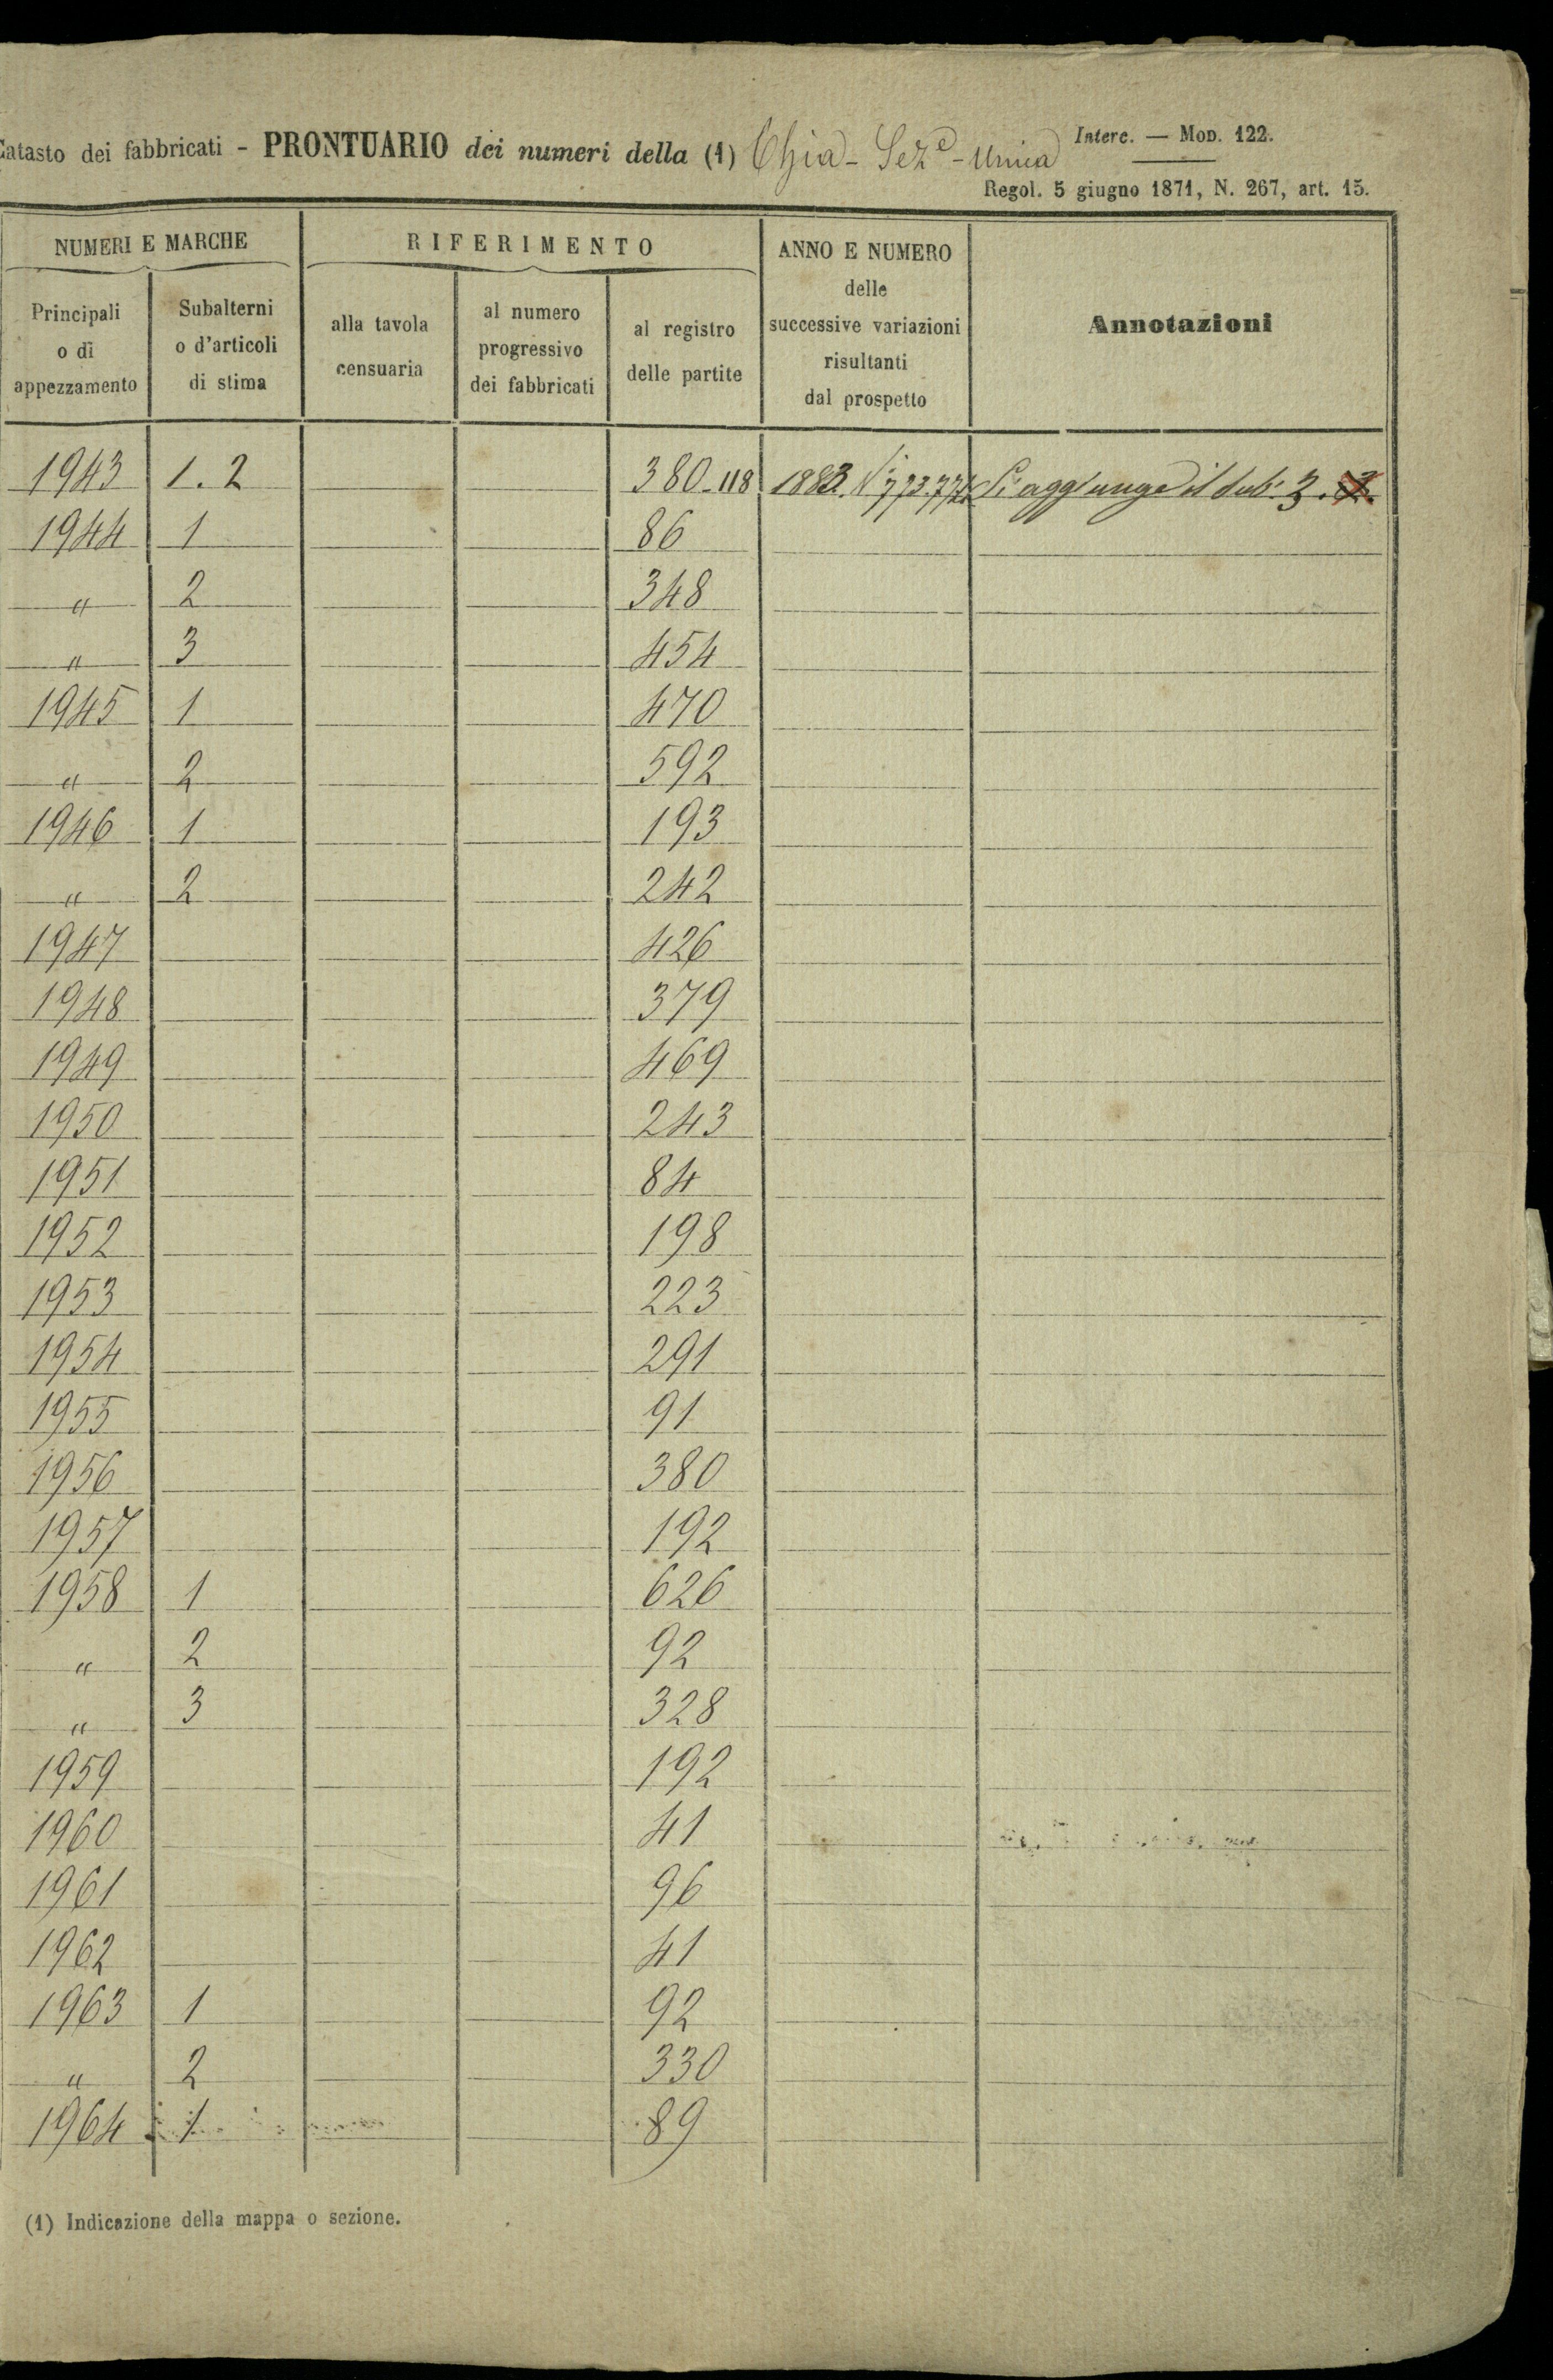 Catasto dei fabbricati - PRONTUARIO dei numeri della (1) Chia - Sez.e - Unica
Interc. — Mod. 122.
Regol. 5 giugno 1871, N. 267, art. 15.
NUMERI E MARCHE
RIFERIMENTO
ANNO E NUMERO
delle
successive variazioni
risultanti
dal prospetto
Annotazioni
Principali
o di
appezzamento
Subalterni
o d'articoli
di stima
alla tavola
censuaria
al numero
progressivo
dei fabbricati
al registro
delle partite
1943 1.2 380-118 1883. Ni 773.774 Si aggiunge il sub: 3.
1944 1 86
" 2 348
" 3 454
1945 1 470
" 2 592
1946 1 193
" 2 242
1947 426
1948 379
1949 469
1950 243
1951 84
1952 198
1953 223
1954 291
1955 91
1956 380
1957 192
1958 1 626
" 2 92
" 3 328
1959 192
1960 41
1961 96
1962 41
1963 1 92
" 2 330
1964 1 89
(1) Indicazione della mappa o sezione.